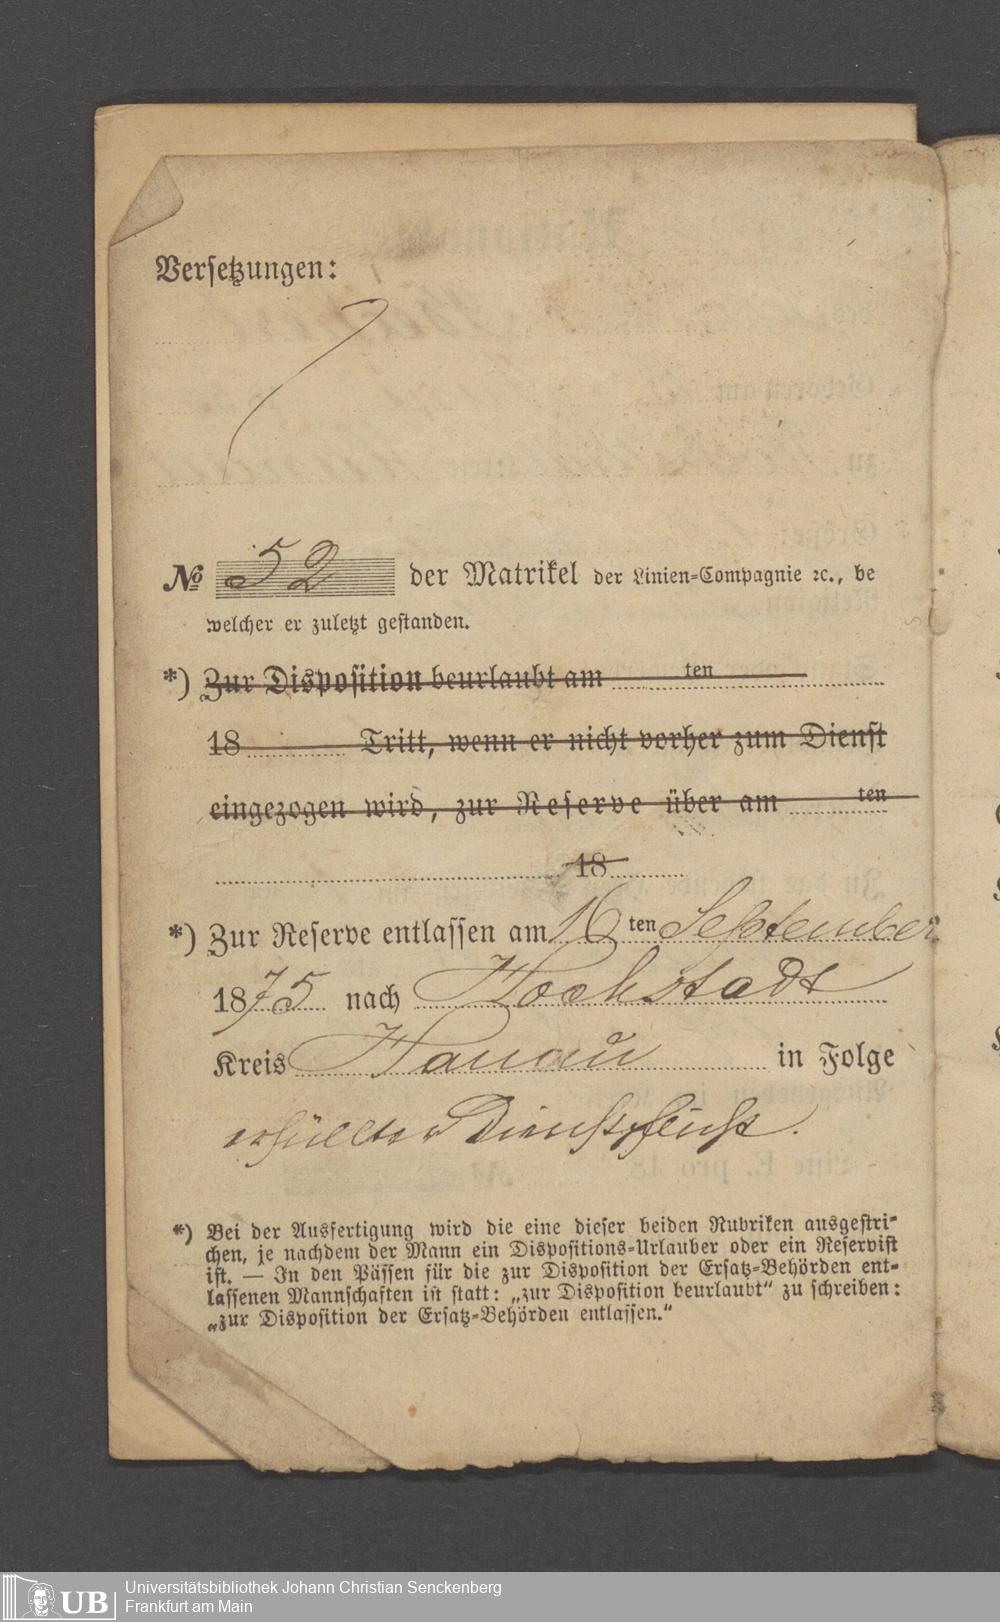 Versetzungen:
No 52 der Matrikel der Linien-Compagnie ꝛc., be
welcher er zuletzt gestanden.
*) Zur Disposition beurlaubt am ten
18 Tritt, wenn er nicht vorher zum Dienst
eingezogen wird, zur Reserve über am ten
18
*) Zur Reserve entlassen am 16 ten September
1875 nach Hochstadt
Kreis Hanau in Folge
erfüllter Dienstpflicht.
*) Bei der Ausfertigung wird die eine dieser beiden Rubriken ausgestri-
chen, je nachdem der Mann ein Dispositions-Urlauber oder ein Reservist
ist. — In den Pässen für die zur Disposition der Ersatz-Behörden ent-
lassenen Mannschaften ist statt: „zur Disposition beurlaubt“ zu schreiben:
„zur Disposition der Ersatz-Behörden entlassen.“
UB Universitätsbibliothek Johann Christian Senckenberg
Frankfurt am Main